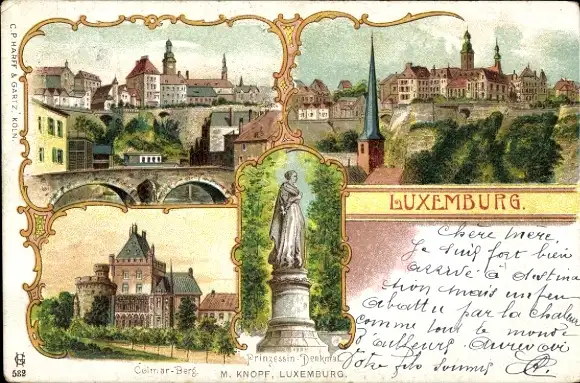 C. P. HARFF & GARTZ, KÖLN.
LUXEMBURG.
Chère Mère
Je suis fort bien
arrivé à destina
tion mais un peu
abattu par la chaleur
comme tout le monde
d'ailleurs. Aurevoir
Votre fils soumis
Colmar-Berg.
Prinzessin-Denkmal.
M. KNOPF, LUXEMBURG.
582